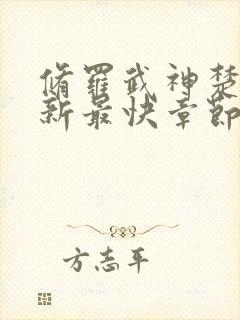 脩羅武神楚
新最快章節
方志平